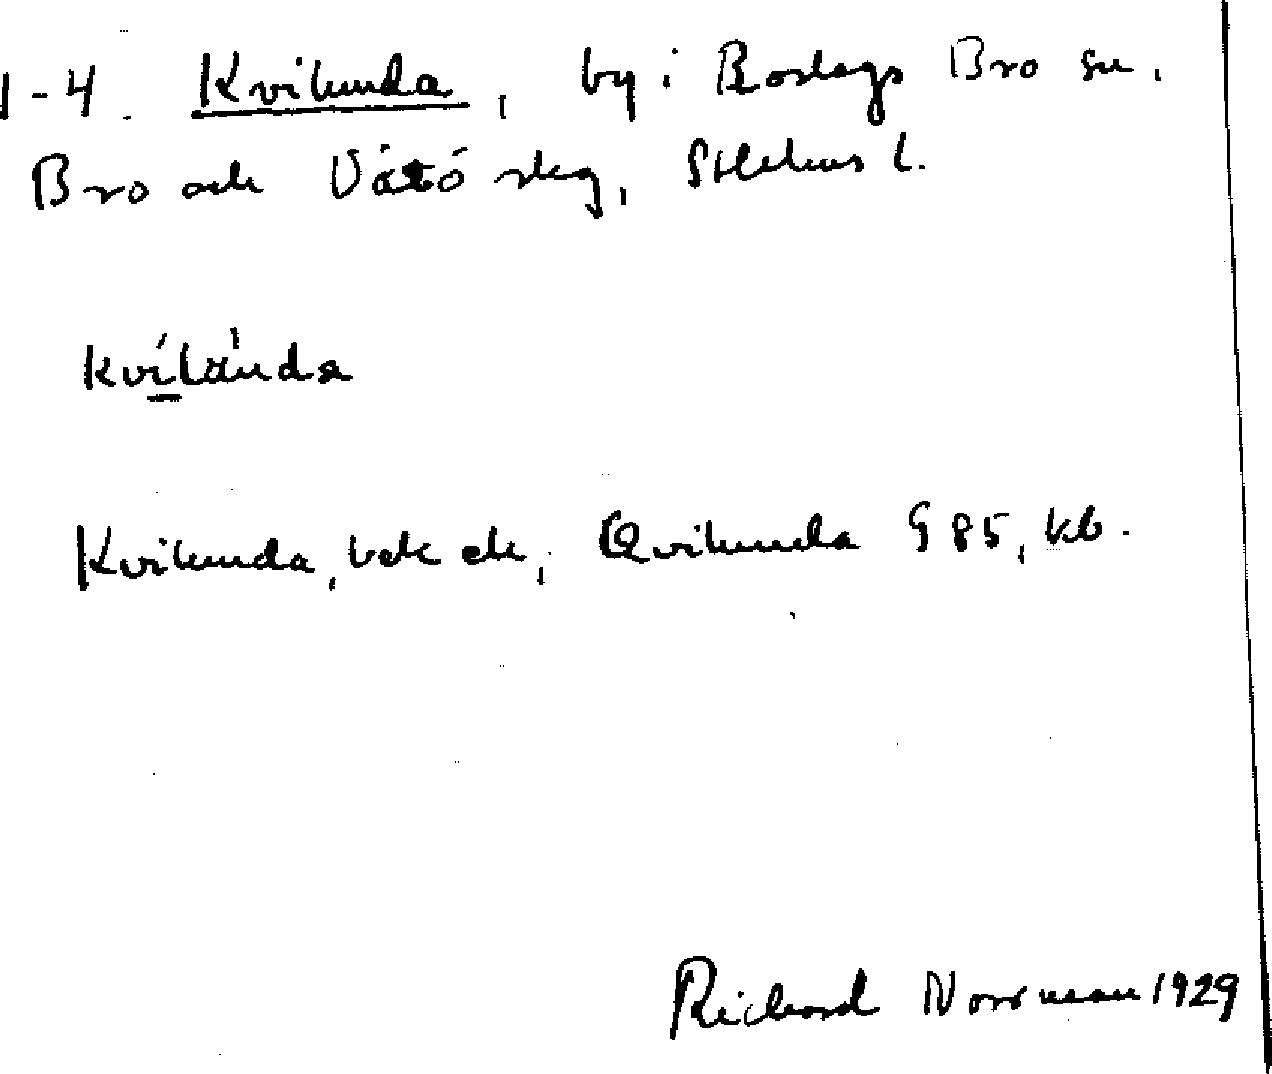 1-4 Kvilunda, by i Roslags Bro sn.
Bro och Vätö skg, Sthlms l.
kvílùnda
Kvilunda, bek ek, Qvilunda G 85, kb.
Richard Norrman 1929